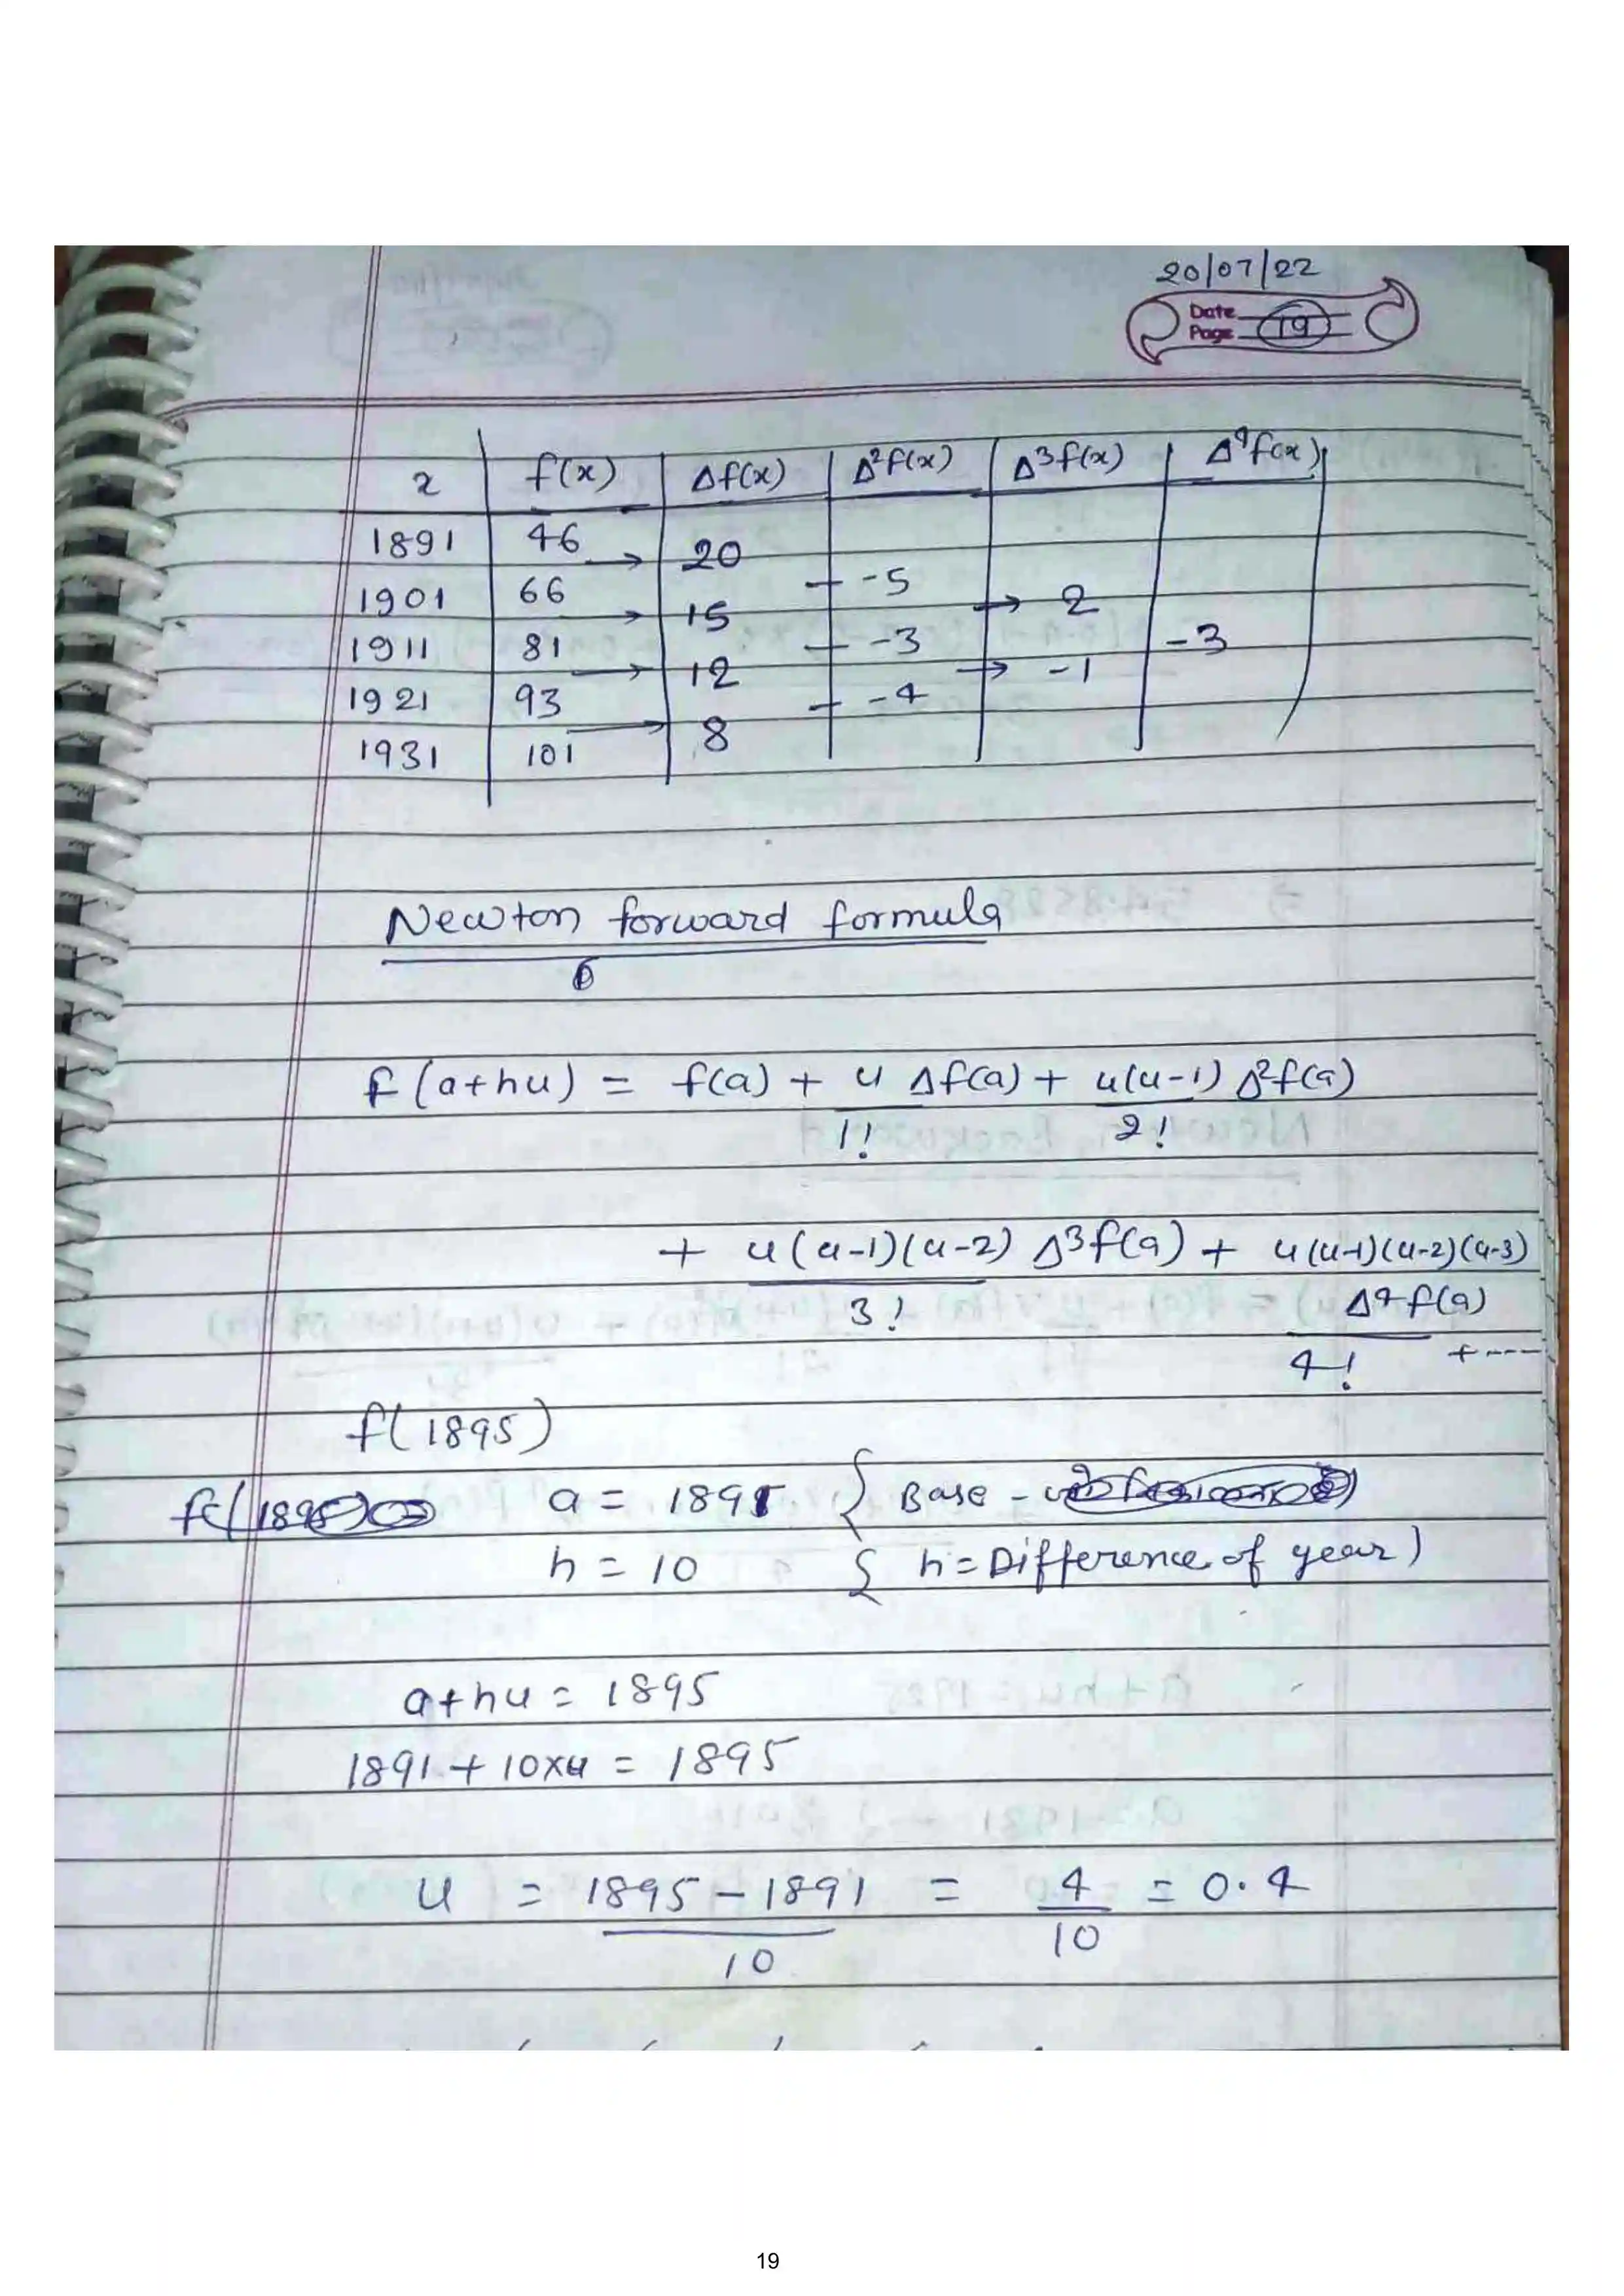 20/07/22
Date
Page 19
x f(x) Δf(x) Δ²f(x) Δ³f(x) Δ⁴f(x)
1891 46 → 20
1901 66 → 15 -5 → 2
1911 81 → 12 -3 → -1 -3
1921 93 → 8 -4
1931 101
Newton forward formula
f(a+hu) = f(a) + u/1! Δf(a) + u(u-1)/2! Δ²f(a)
+ u(u-1)(u-2)/3! Δ³f(a) + u(u-1)(u-2)(u-3)
Δ⁴f(a)
4! + ----
f(1895)
a = 1891 { Base -
h = 10 { h = Difference of year)
a+hu = 1895
1891 + 10×u = 1895
u = 1895 - 1891 = 4 = 0.4
10 10
19